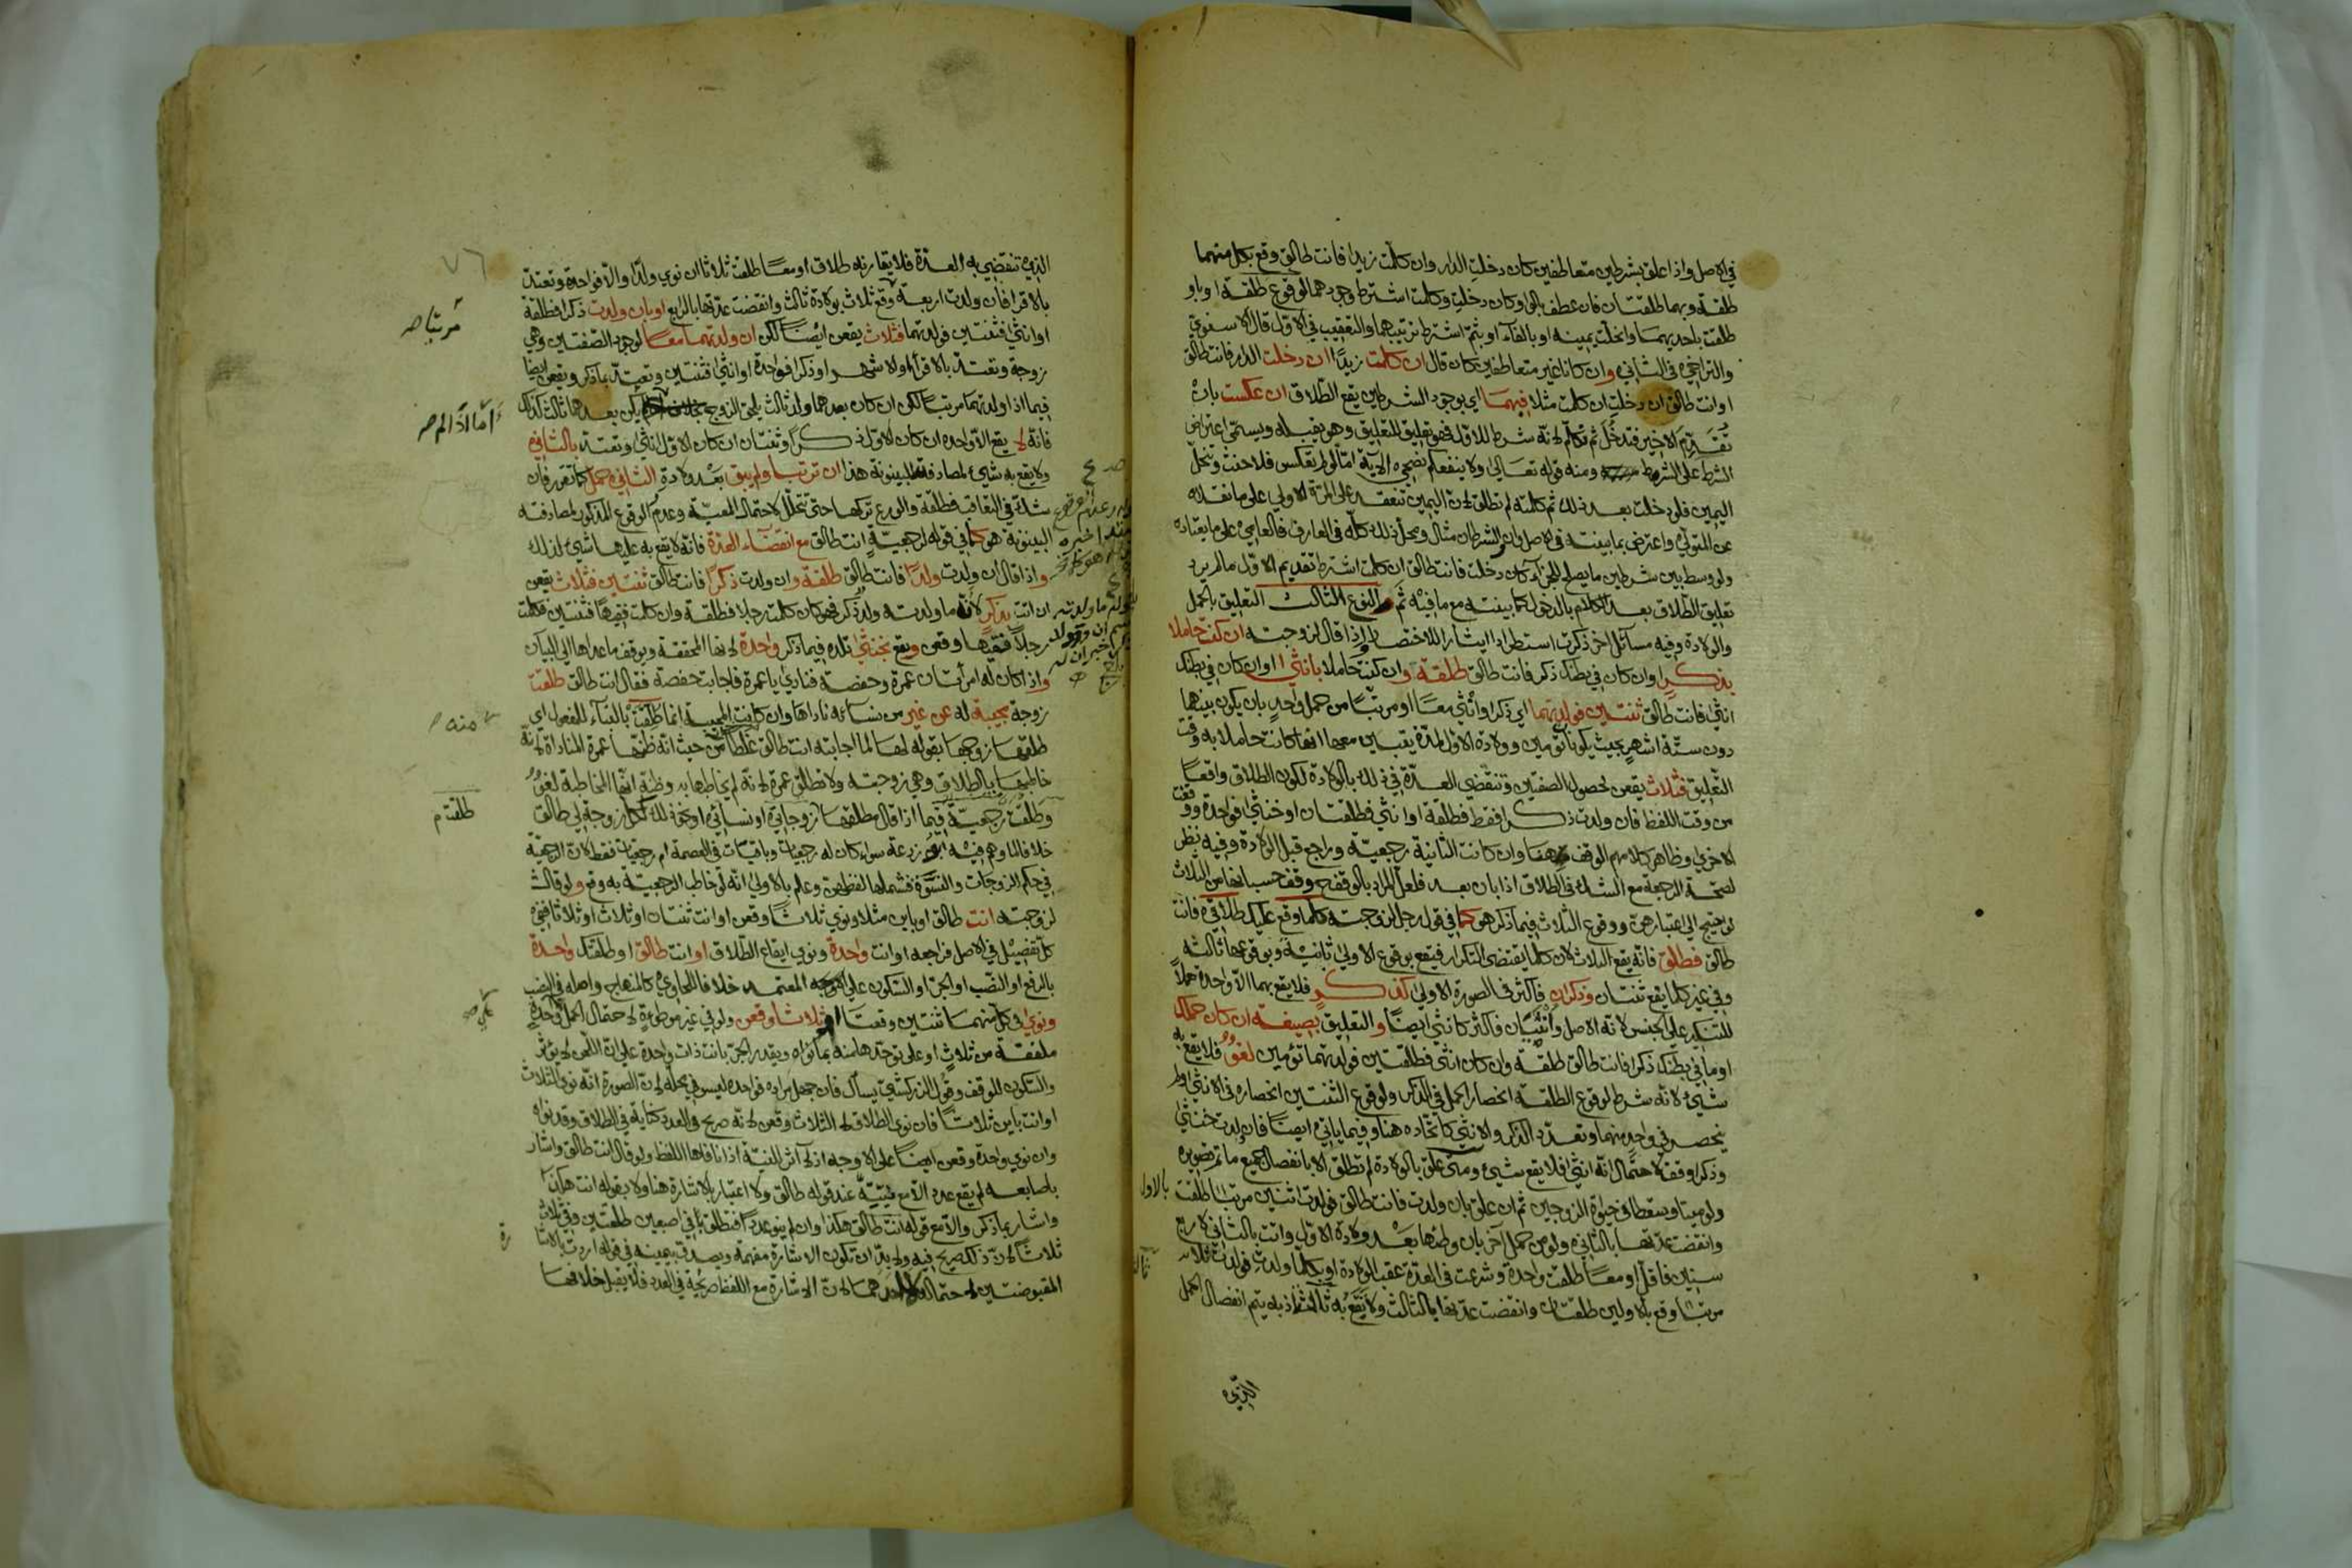 في الاصل واذا علق بشرطين متعاطفين كان دخلت الدار وان كلمت زيدا فانت طالق وقع بكل منهما
طلقة وبهما طلقتان فان عطف بالواو كان دخلت وكلمت اشترط وجودهما لوقوع طلقة او باو
طلقت باحديهما وانحلت يمينه او بالفاء او بثم اشترط ترتيبهما والتعقيب في الاول قال الاسنوي
والتراخي في الثاني وان كانا غير متعاطفين كان قال ان كلمت زيدا ان دخلت الدار فانت طالق
او انت طالق ان دخلت ان كلمت مثلا فيهما اي بوجود الشرطين يقع الطلاق ان عكست بان
تقدم الاخير فتدخل ثم تكلم لانه شرط للاول فهو تعليق للتعليق وهو يقبله ويسمى اعتراض
الشرط على الشرط ومنه قوله تعالى ولا ينفعكم نصحي الاية اما لو لم تعكس فلا حنث وتنحل
اليمين فلو دخلت بعد ذلك ثم كلمته لم تطلق لان اليمين تنعقد على المرة الاولى على ما نقلاه
عن المتولي واعترض بما بينته في الاصل وان الشرطان مثال ومحل ذلك كله في العارف فالعامي على ما يعتاده
ولو وسط بين شرطين ما يصلح للجزاء كان دخلت فانت طالق ان كلمت اشترط تقديم الاول ما لم يرد
تعليق الطلاق بعد الكلام بالدخول كما بينته مع ما فيه ثم النوع الثالث التعليق بالحمل
والولادة وفيه مسائل اخر ذكرت استطرادا ايثارا للاختصار واذا قال لزوجته ان كنت حاملا
بذكر او ان كان في بطنك ذكر فانت طالق طلقة وان كنت حاملا بانثى او ان كان في بطنك
انثى فانت طالق ثنتين فولدتهما اي ذكرا وانثى معا او مرتبا من حمل واحد بان يكون بينهما
دون ستة اشهر بحيث يكونا توأمين وولادة الاول لمدة يتبين معها انها كانت حاملا به وقت
التعليق فثلاث يقعن لحصول الصفتين وتنقضي العدة في ذلك بالولادة لكون الطلاق واقعا
من وقت اللفظ فان ولدت ذكرا فقط فطلقة او انثى فطلقتان او خنثى فواحدة ووقفت
الاخرى وظاهر كلامهم الوقف هنا وان كانت الثانية رجعية وراجع قبل الولادة وفيه نظر
لصحة الرجعة مع الشك في الطلاق اذا بان بعد فلعل المراد بالوقف وقف حسبانها من الثلاث
لو احتيج الى اعتبارهن ووقوع الثلاث فيما ذكر هو كما في قول رجل لزوجته كلما وقع عليك طلاقي فانت
طالق فطلق فانه يقع الثلاث لان كلما يقتضي التكرار فيقع بوقوع الاولى ثانية وبوقوعها ثالثة
وفي غير كلما يقع ثنتان وذكران فاكثر في الصورة الاولى كذكر فلا يقع بهما الا واحدة حملا
للتنكير على الجنس لانه الاصل وانثيان فاكثر كانثى ايضا والتعليق بصيغة ان كان حملك
او ما في بطنك ذكرا فانت طالق طلقة وان كان انثى فطلقتين فولدتهما توأمين لغو فلا يقع به
شيئ لانه شرط لوقوع الطلقة انحصار الحمل في الذكر ولوقوع الثنتين انحصاره في الانثى ولم
ينحصر في واحد منهما وتعدد الذكر والانثى كاتحاده هنا وفيما ياتي ايضا فان ولدت خنثى
وذكرا وقف لاحتمال انه انثى فلا يقع شيئ ومتى علق بالولادة لم تطلق الا بانفصال جميع ما تم تصويره
ولو ميتا وسقطا في حياة الزوجين ثم ان علق بان ولدت فانت طالق فولدت اثنين مرتبا طلقت بالاول
وانقضت عدتها بالثاني ولو من حمل آخر بان وطئها بعد ولادة الاول واتت بالثاني لاربع
سنين فاقل او معا طلقت واحدة وشرعت في العدة عقب الولادة او بكلما ولدت فولدت ثلاثة
مرتبا وقع بالاولين طلقتان وانقضت عدتها بالثالث ولا يقع به ثالثة اذ به يتم انفصال الحمل
الذي
٧٦
الذي تنقضي به العدة فلا يقارنه طلاق او معا طلقت ثلاثا ان نوى ولدا والا فواحدة وتعتد
بالاقرا فان ولدت اربعة وقع ثلاث بولادة ثالث وانقضت عدتها بالرابع او بان ولدت ذكرا فطلقة
او انثى فثنتين فولدتهما فثلاث يقعن ايضا لكن ان ولدتهما معا لوجود الصفتين وهي
زوجة وتعتد بالاقراء او الاشهر او ذكرا فواحدة او انثى فثنتين وتعتد بما ذكر ويقعن ايضا
فيما اذا ولدتهما مرتبا لكن ان كان بعدهما ولد ثالث يلحق الزوج يكن بعدهما ثالث كذلك
فانه لا يقع الا واحدة ان كان الاول ذكرا وثنتان ان كان الاول انثى وتعتد بالثاني
ولا يقع به شيئ لمصادفته للبينونة هذا ان ترتبا ولم يبق بعد ولادة الثاني حمل كما تقرر فان
شك في التعاقب فطلقة والورع تركها حتى تتحلل لاحتمال المعية وعدم الوقوع المذكور لمصادفته
البينونة هو كما في قوله لرجعية انت طالق مع انقضاء العدة فانه لا يقع به عليها شيئ لذلك
واذا قال ان ولدت ولدا فانت طالق طلقة وان ولدت ذكرا فانت طالق ثنتين فثلاث يقعن
ان اتت بذكر لانه ما ولدته ولد ذكر فهو كان كلمت رجلا فطلقة وان كلمت فقيها فثنتين فكلمت
رجلا فقيها وقعن ويقع بخنثى تلده فيما ذكر واحدة لانها المحققة ويوقف ما عداها الى البيان
واذا كان له امرأتان عمرة وحفصة فنادى يا عمرة فاجابت حفصة فقال انت طالق طلقت
زوجة مجيبة له عن غير من نسائه ناداها وان كانت المجيبة انما طلقت بالبناء للمفعول اي
طلقها زوجها بقوله لها لما اجابته انت طالق غلطا من حيث انه ظنها عمرة المناداة لانه
خاطبها بالطلاق وهي زوجته ولا تطلق عمرة لانه لم يخاطبها به وظنه انها المخاطبة لغو
وطلقت رجعية فيما اذا قال مطلقها زوجاتي او نسائي او نحو ذلك ككل زوجة لي طالق
خلافا لما وهم فيه ابو زرعة سواء كان له رجعيات وباقيات في العصمة ام رجعيات فقط لان الرجعية
في حكم الزوجات والنسوة فشملها لفظهن وعلم بالاولى انه لو خاطب الرجعية به وقع ولو قال
لزوجته انت طالق او باين مثلا ونوى ثلاثا وقعن او انت ثنتان او ثلاث او ثلاثا ففي
كل تفصيل في الاصل فراجعه او انت واحدة ونوى ايقاع الطلاق او انت طالق او طلقتك واحدة
بالرفع او النصب او الجر او السكون على الوجه المعتمد خلافا للحاوي كالمنهاج واصله في النصب
ونوى في كل منهما ثنتين وقعتا او ثلاثا وقعن ولو في غير موطوءة لاحتمال الحمل على واحدة
ملفقة من ثلاث او على توحدها منه بما نواه ويقدر الجر بانت ذات واحدة على ان اللحن لا يؤثر
والسكون للوقف وقول الزركشي يسأل فان جهل مراده فواحدة ليس في محله لان الصورة انه نوى الثلاث
او انت باين ثلاثا فان نوى الطلاق لا الثلاث وقعن لانه صريح في العدد كناية في الطلاق وقد نواه
وان نوى واحدة وقعن ايضا على الاوجه اذ لا اثر للنية اذا نافاها اللفظ ولو قال انت طالق واشار
باصابعه لم يقع عدد الا مع نيته عند قوله طالق ولا اعتبار بالاشارة هنا ولا بقوله انت هكذا
واشار بما ذكر والا مع قوله انت طالق هكذا وان لم ينو عددا فتطلق في اصبعين طلقتين وفي ثلاث
ثلاثا لان ذلك صريح فيه ولا بد ان تكون الاشارة مفهمة ويصدق بيمينه في قوله اردت بالاشارة
المقبوضتين لاحتماله لا احدهما لان الاشارة مع اللفظ صريحة في العدد فلا يقبل خلافها
مرتبا صح
اما اذا لم صح
منه
طلقت م